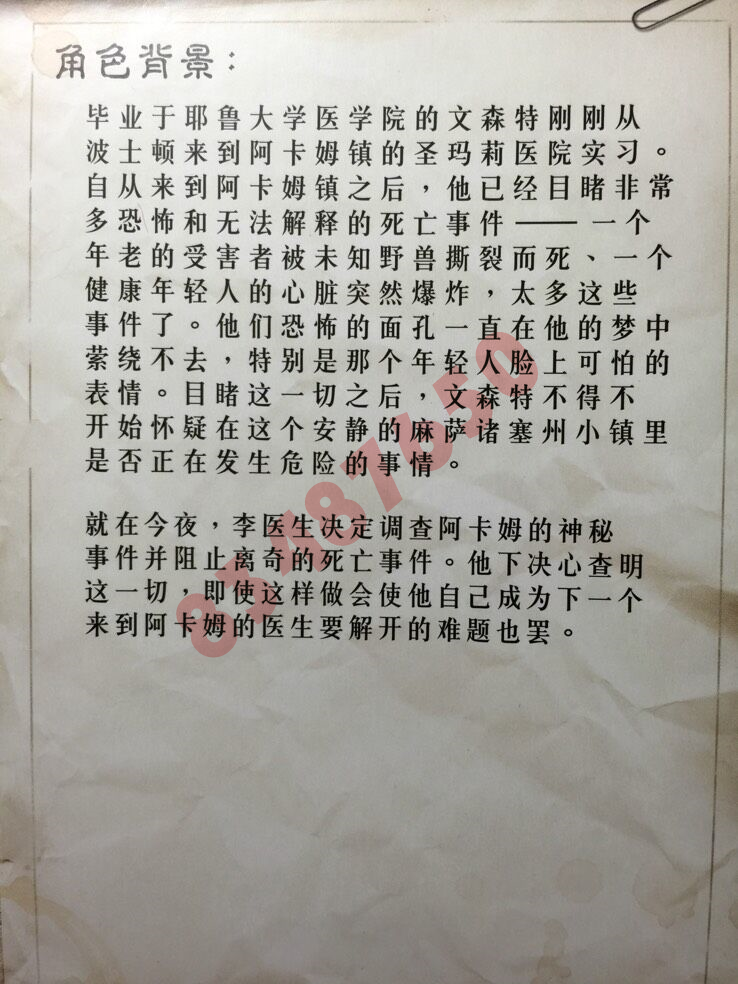 角色背景：
毕业于耶鲁大学医学院的文森特刚刚从
波士顿来到阿卡姆镇的圣玛莉医院实习。
自从来到阿卡姆镇之后，他已经目睹非常
多恐怖和无法解释的死亡事件——一个
年老的受害者被未知野兽撕裂而死、一个
健康年轻人的心脏突然爆炸，太多这些
事件了。他们恐怖的面孔一直在他的梦中
萦绕不去，特别是那个年轻人脸上可怕的
表情。目睹这一切之后，文森特不得不
开始怀疑在这个安静的麻萨诸塞州小镇里
是否正在发生危险的事情。
就在今夜，李医生决定调查阿卡姆的神秘
事件并阻止离奇的死亡事件。他下决心查明
这一切，即使这样做会使他自己成为下一个
来到阿卡姆的医生要解开的难题也罢。